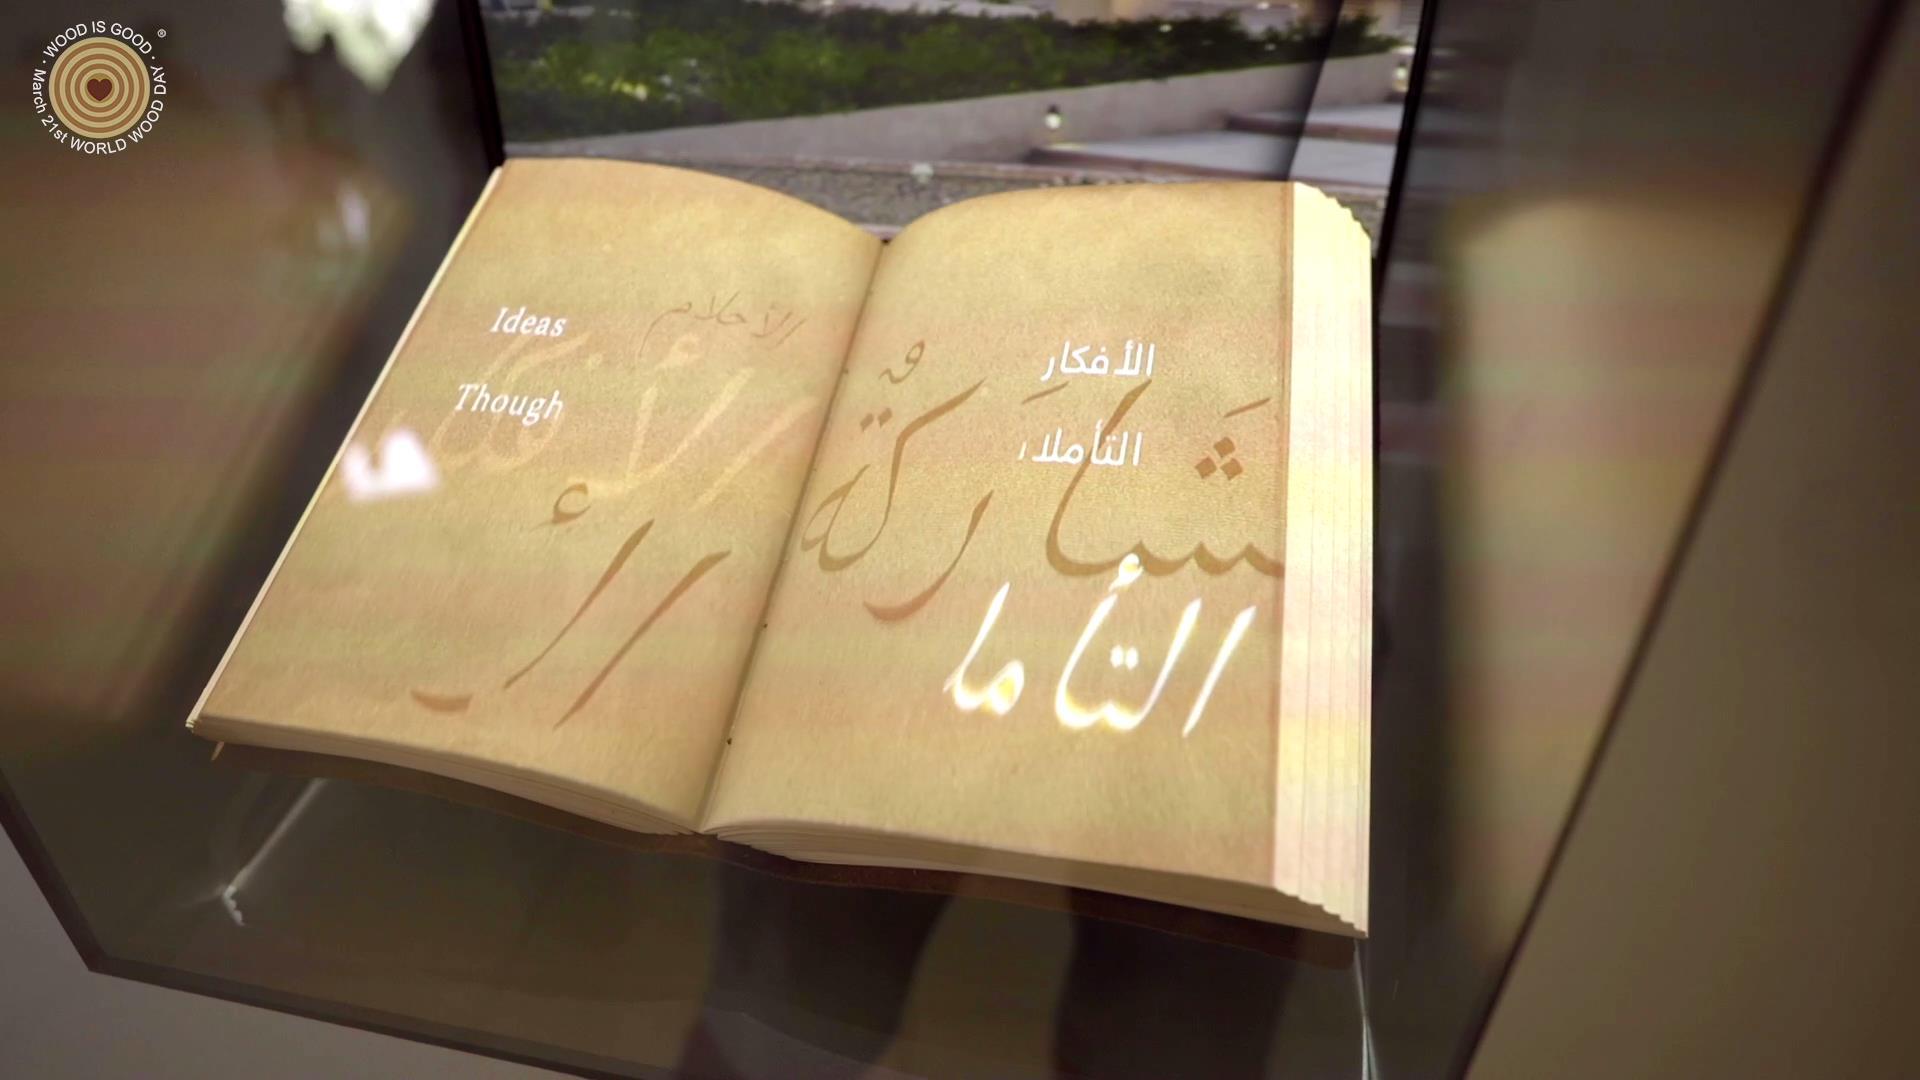 WOOD IS GOOD
March 21st WORLD WOOD DAY
®
Ideas
Though
الأحلام
الأفكار
التأملا
شَارَكْتُ
التأما